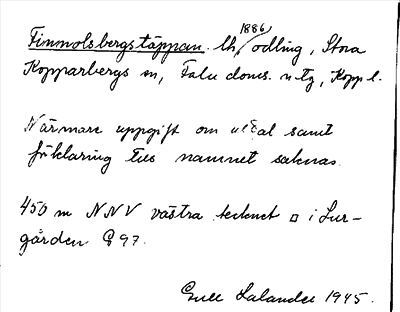 Finmolsbergstäppan. lh, 1886 odling, Stora
Kopparbergs sn, Falu doms. ntg, Kopp l.
Närmare uppgift om uttal samt
förklaring till namnet saknas.
450 m NNV västra tecknet □ i Lur-
gården G 97.
Gull Lalander 1945.